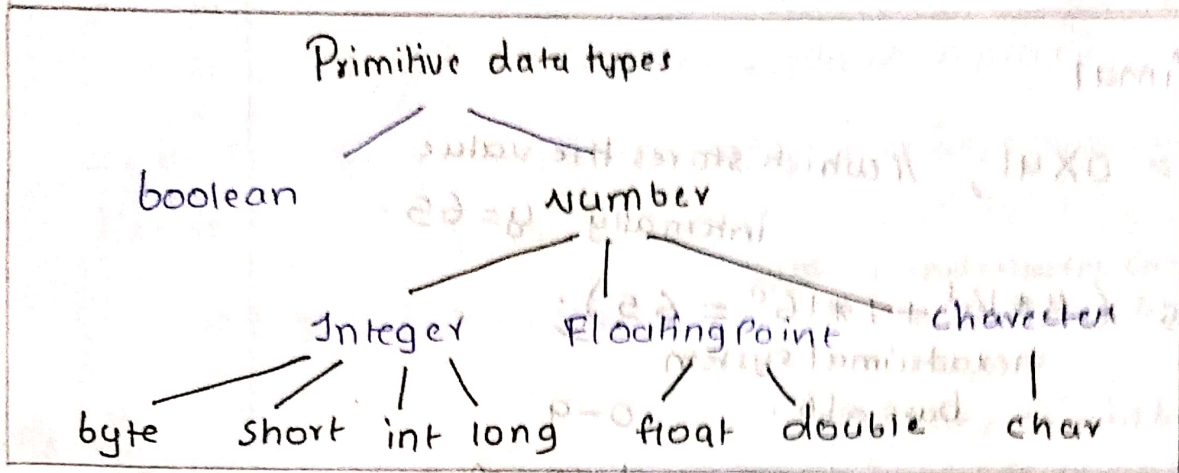 Primitive data types
boolean
Number
Integer
Floating Point
byte
short
int
long
float
double
char